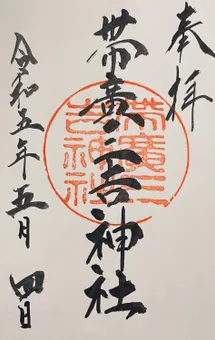 奉拝
帯廣三吉神社
帯廣三吉神社
令和五年五月四日